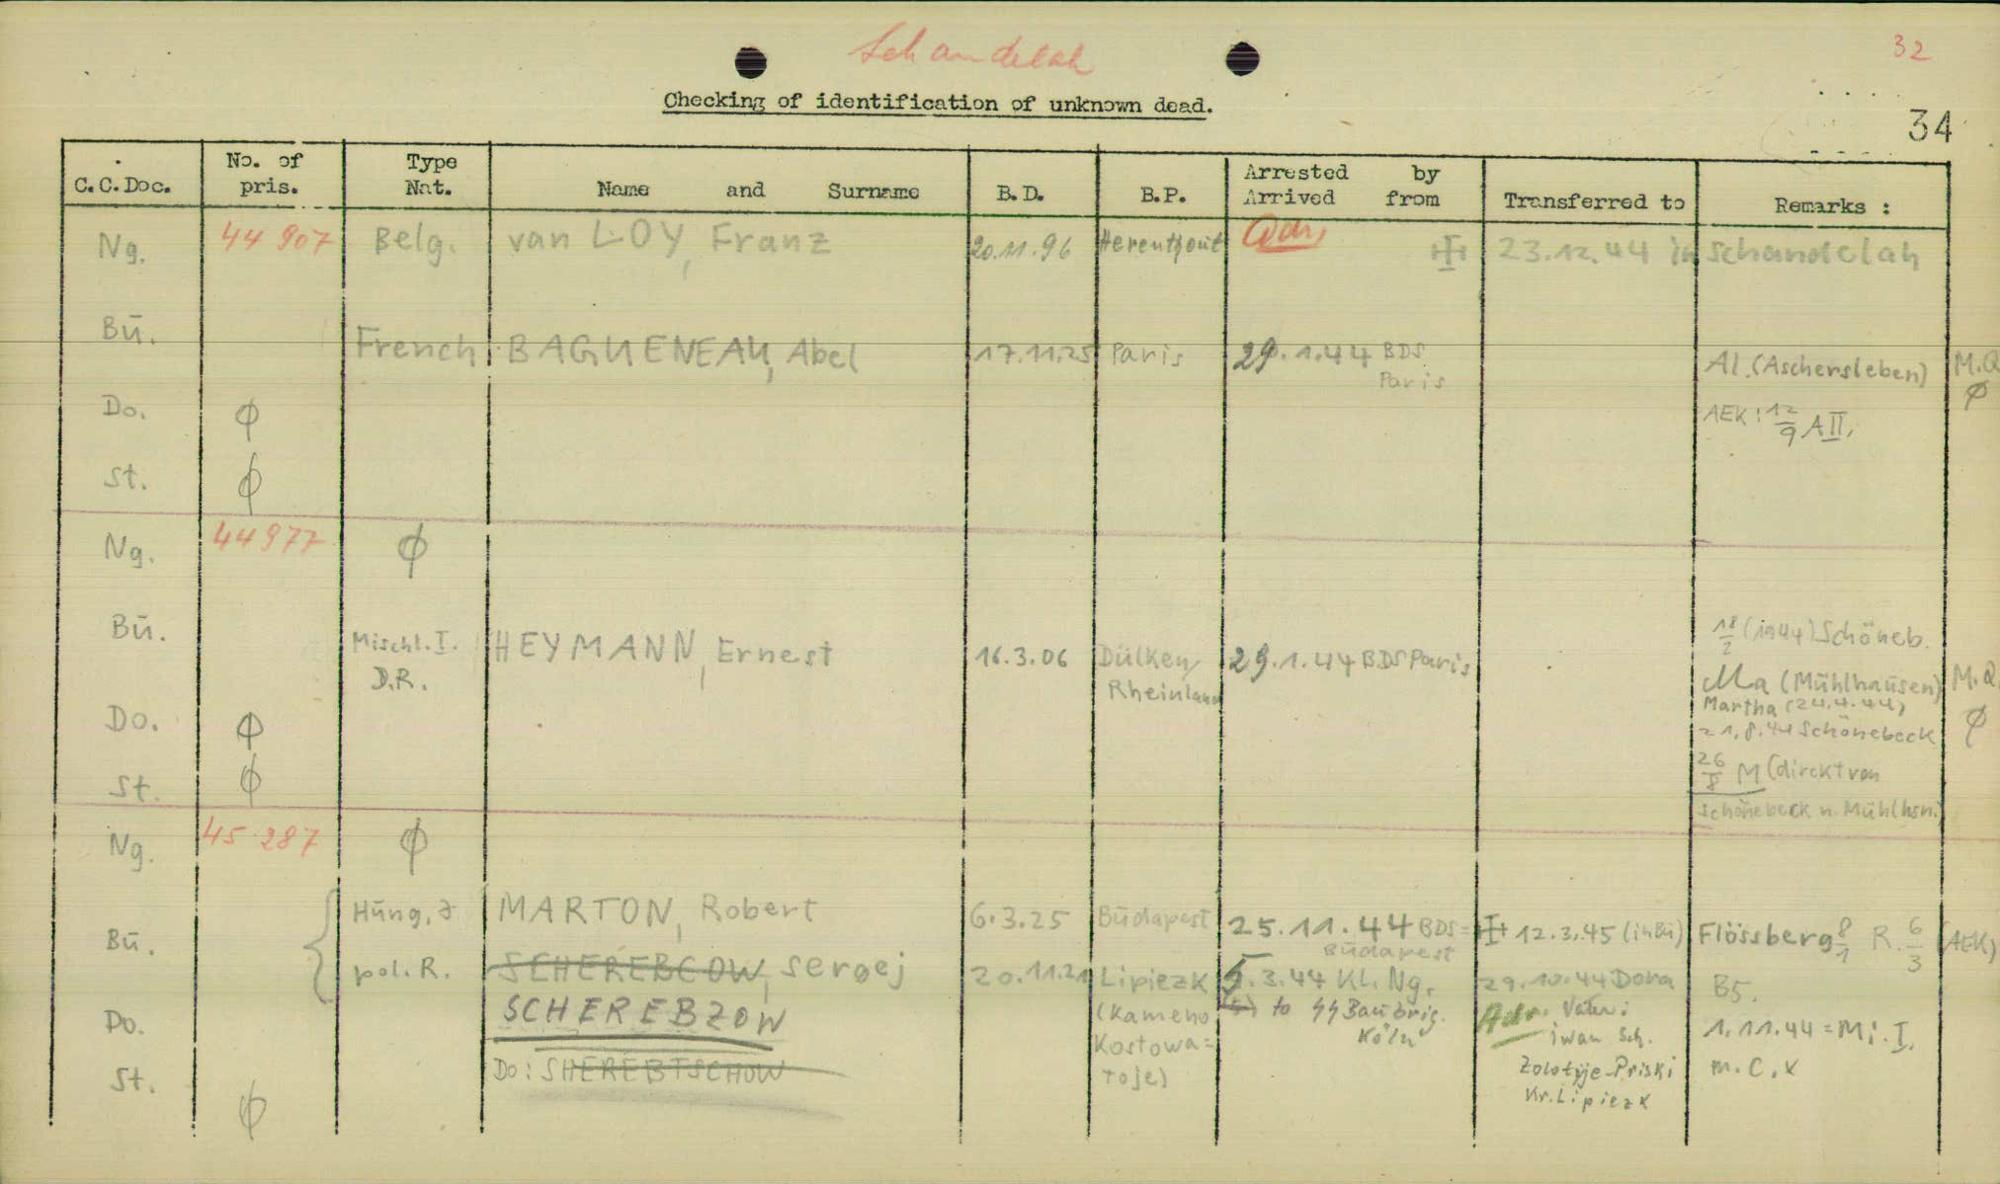 Schandelah
32
Checking of identification of unknown dead.
34
C.C.Doc. No. of pris. Type Nat. Name and Surname B.D. B.P. Arrested by Arrived from Transferred to Remarks :
Ng. 44 907 Belg. van LOY, Franz 20.11.96 Herenthout Adr, 23.12.44 in Schandelah
Bū. French BAGUENEAU, Abel 17.11.25 Paris 29.1.44 BDS Paris Al.(Aschersleben) M.Q
Do. ϕ AEK: 12/9 A II. ϕ
St. ϕ
Ng. 44977 ϕ
Bū. Mischl. I. HEYMANN, Ernest 16.3.06 Dülken 29.1.44 BDS Paris 18/2 (in 44) Schöneb.
D.R. Rheinland Ma (Mühlhausen) M.Q.
Martha (24.4.44)
Do. ϕ 21.8.44 Schönebeck ϕ
St. ϕ 26/8 M (direkt von
Schönebeck n. Mühlhsn.)
Ng. 45 287 ϕ
Hūng. MARTON, Robert 6.3.25 Būdapest 25.11.44 BDS= Būdapest 12.3.45 (in Bū) Flössberg 8/1 R. 6/3 (AEK)
Bū. pol. R. SCHEREBCOW, Sergej 20.11.21 Lipiezk 5.3.44 Kl. Ng. 29.10.44 Dora B5.
Do. SCHEREBZOW (Kameno to SS Baūbrig. Köln Adr. Vater: 1.11.44 = Mi. I.
Kostowa= iwan Sch. m.C.x
St. ϕ Do: SHEREBTSCHOW toje) Zolotyje-Priski
Kr. Lipiezk